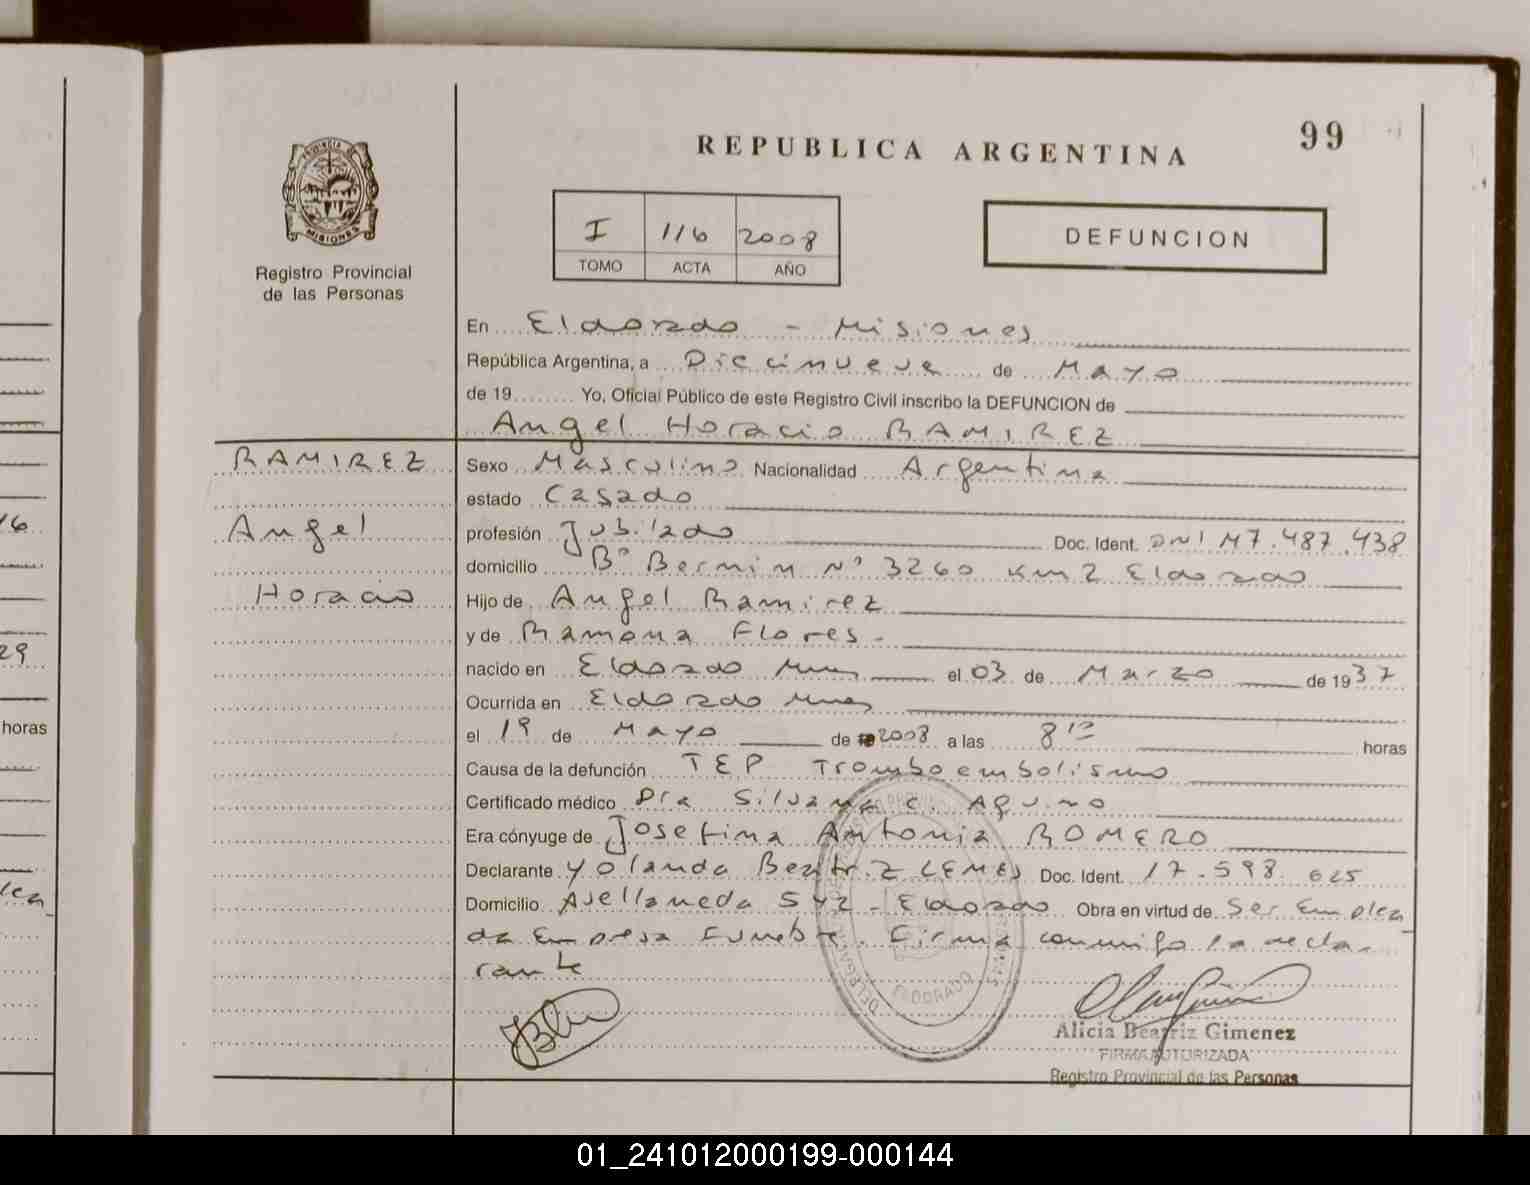 REPUBLICA ARGENTINA
99
PROVINCIA DE
MISIONES
Registro Provincial
de las Personas
I 116 2008
TOMO ACTA AÑO
DEFUNCION
En Eldorado - Misiones
República Argentina, a Diecinueve de Mayo
de 19 Yo, Oficial Público de este Registro Civil inscribo la DEFUNCION de
Angel Horacio RAMIREZ
RAMIREZ
Angel
Horacio
Sexo Masculino Nacionalidad Argentina
estado Casado
profesión Jubilado Doc. Ident. DNI M7.487.438
domicilio Bº Bermin Nº 3260 Km 2 Eldorado
Hijo de Angel Ramirez
y de Ramona Flores.-
nacido en Eldorado Mnes el 03 de Marzo de 1937
Ocurrida en Eldorado Mnes
el 19 de Mayo de 2008 a las 8 horas
Causa de la defunción TEP Tromboembolismo
Certificado médico Dra Silvana C. Aquino
Era cónyuge de Josefina Antonia ROMERO
Declarante Yolanda Beatriz LEMES Doc. Ident. 17.598.625
Domicilio Avellaneda 542 - Eldorado Obra en virtud de Ser Emplea
da Empresa Funebre. Firma conmigo la decla-
rante
ELDORADO
Alicia Beatriz Gimenez
FIRMA AUTORIZADA
Registro Provincial de las Personas
16
29
horas
lea
01_241012000199-000144